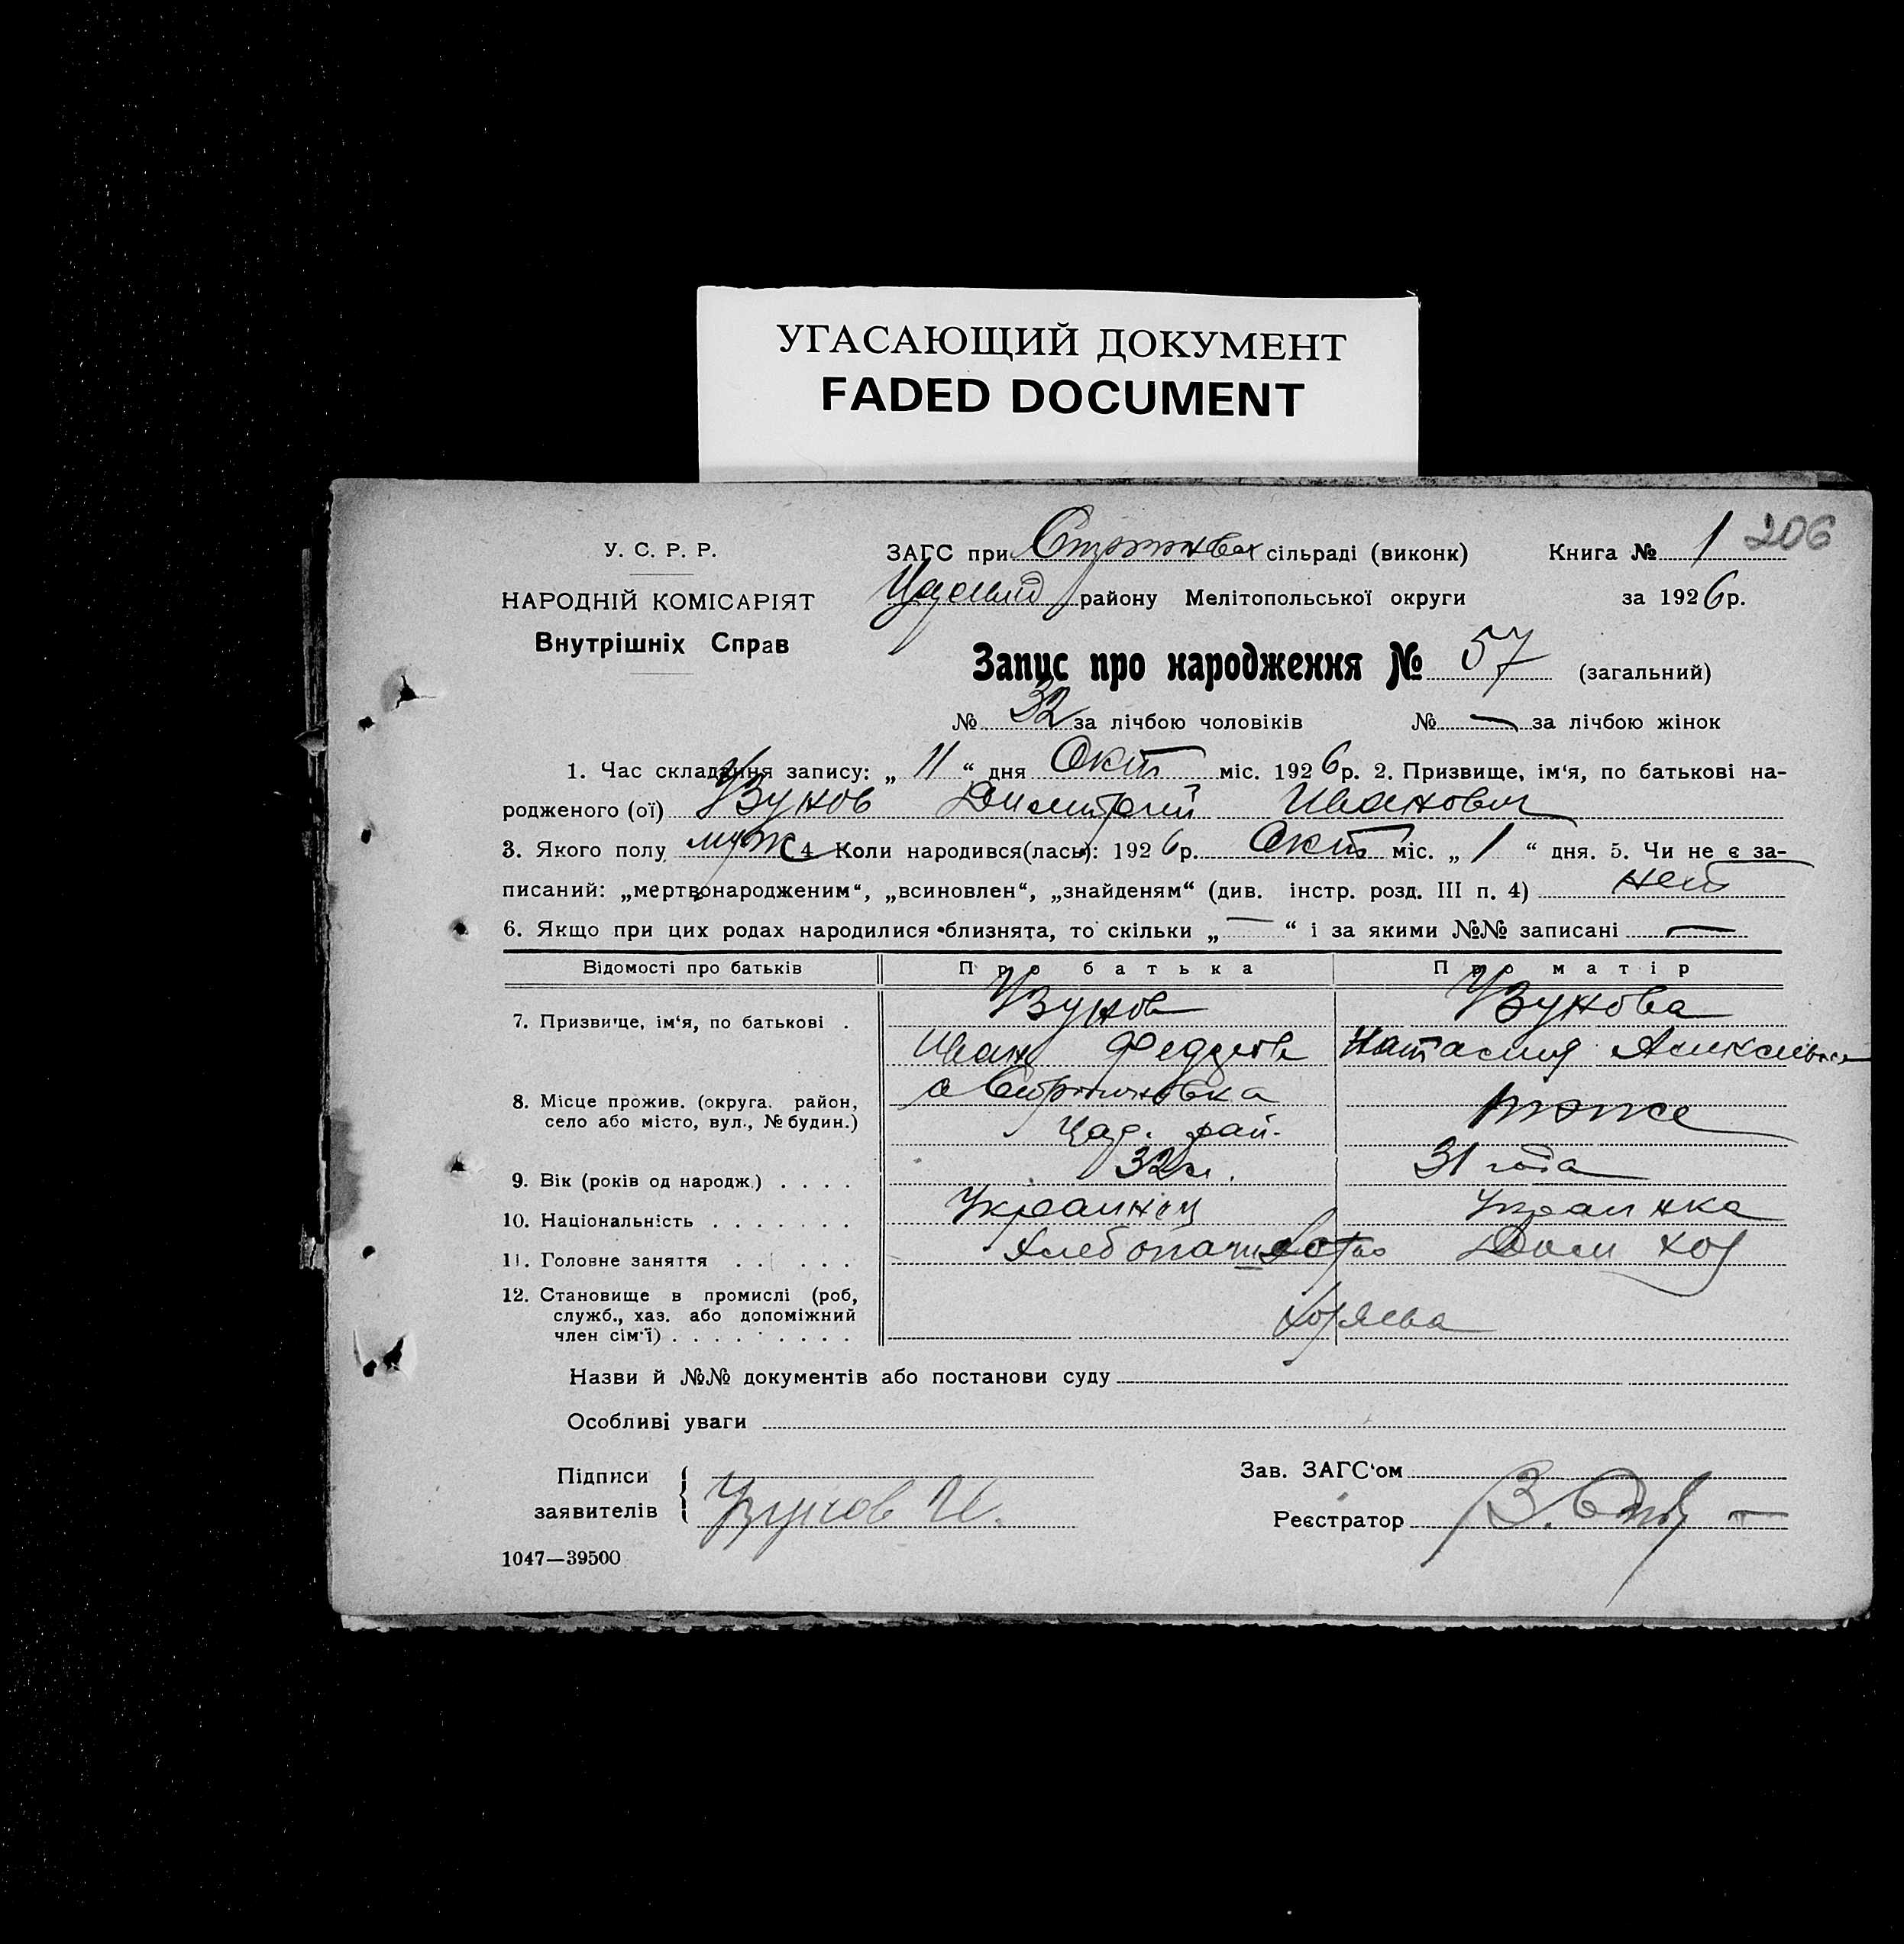 УГАСАЮЩИЙ ДОКУМЕНТ
FADED DOCUMENT
206
У. С. Р. Р.
НАРОДНІЙ КОМІСАРІЯТ
Внутрішніх Справ
ЗАГС при сільраді (виконк) Книга № 1
району Мелітопольської округи за 1926 р.
Запис про народження № 57 (загальний)
№ 32 за лічбою чоловіків № — за лічбою жінок
1. Час складання запису: „ 11 “ дня Окт міс. 1926 р. 2. Призвище, ім‘я, по батькові на-
родженого (ої) Узунов Димитрий Иванович
3. Якого полу муж 4 Коли народився(лась): 1926 р. Окт міс. „ 1 “ дня. 5. Чи не є за-
писаний: „мертвонародженим“, „всиновлен“, „знайденям“ (див. інстр. розд. III п. 4) нет
6. Якщо при цих родах народилися близнята, то скільки „ — “ і за якими №№ записані —
Відомості про батьків Про батька Про матір
7. Призвище, ім‘я, по батькові . Узунов Узунова
Иван
8. Місце прожив. (округа. район,
село або місто, вул., № будин.) тоже
рай.
9. Вік (років од народж.) . . . . 32 31 года
10. Національність . . . . . . . Украинец Украинка
11. Головне заняття . . . . . . Хлебопаш Дом хоз
12. Становище в промислі (роб,
служб., хаз. або допоміжний
член сім‘ї) . . . . . . . . . Хозяева
Назви й №№ документів або постанови суду
Особливі уваги
Підписи
заявителів Узунов И.
Зав. ЗАГС‘ом
Реєстратор
1047—39500